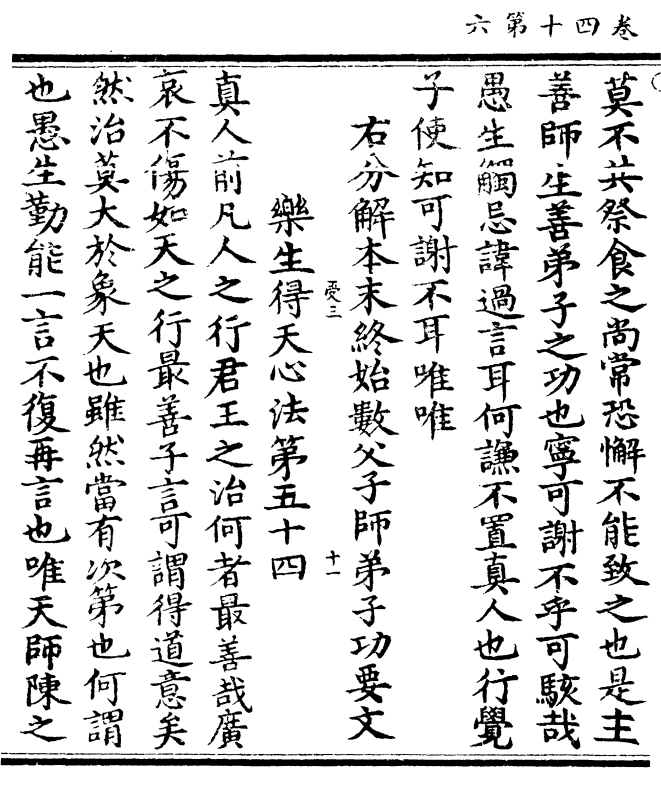 卷四十第六
莫不共祭食之尚常恐懈不能致之也是主
善師生善弟子之功也寧可謝不乎可駭哉
愚生觸忌諱過言耳何謙不置真人也行覺
子使知可謝不耳唯唯
右分解本末終始數父子師弟子功要文
受三
十一
樂生得天心法第五十四
真人前凡人之行君王之治何者最善哉廣
哀不傷如天之行最善子言可謂得道意矣
然治莫大於象天也雖然當有次第也何謂
也愚生勤能一言不復再言也唯天師陳之